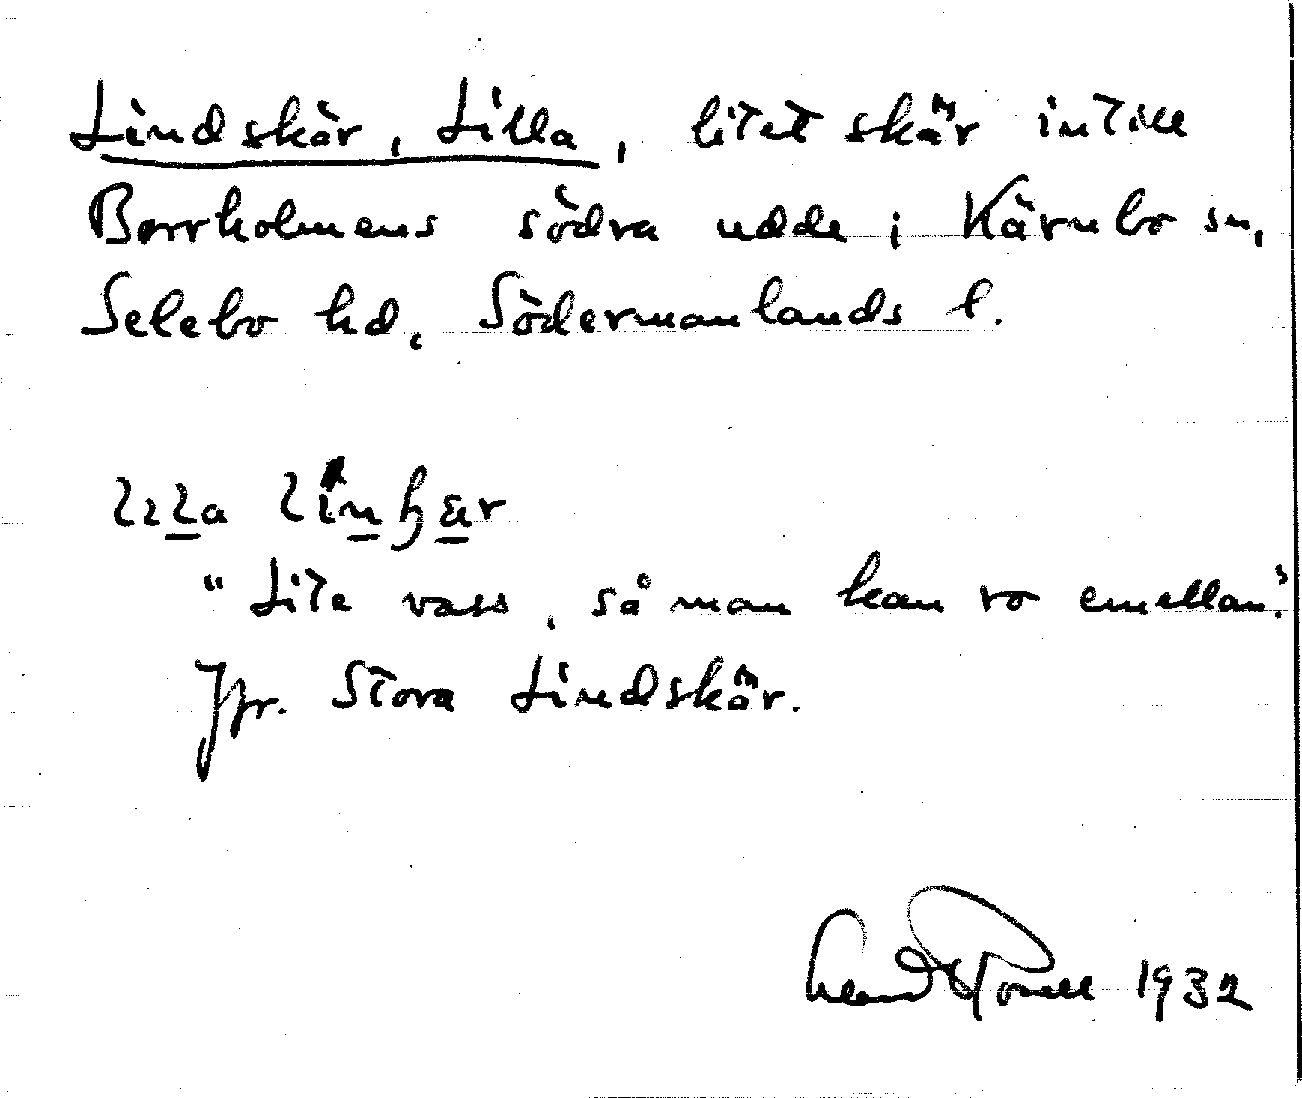 Lindskär, Lilla, litet skär intill
Borrholmens södra udde i Kärnbo sn,
Selebo hd, Södermanlands l.
"Lite vass, så man kan ro emellan".
Jfr. Stora Lindskär.
1932